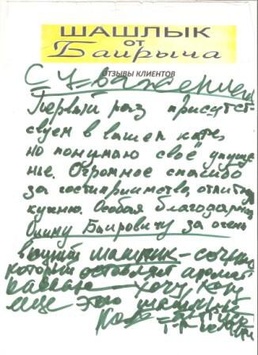 ШАШЛЫК
ОТ
Баирыча
ОТЗЫВЫ КЛИЕНТОВ
С Уважением
Первый раз присутст-
вуем в вашем кафе,
но понимаю своё упуще-
ние. Огромное спасибо
за гостеприимство, отличную
кухню. Особая благодарность
Баировичу за очень
вкусный шашлык - сочный
который оставляет аромат
хочу
еще этого шашлыка